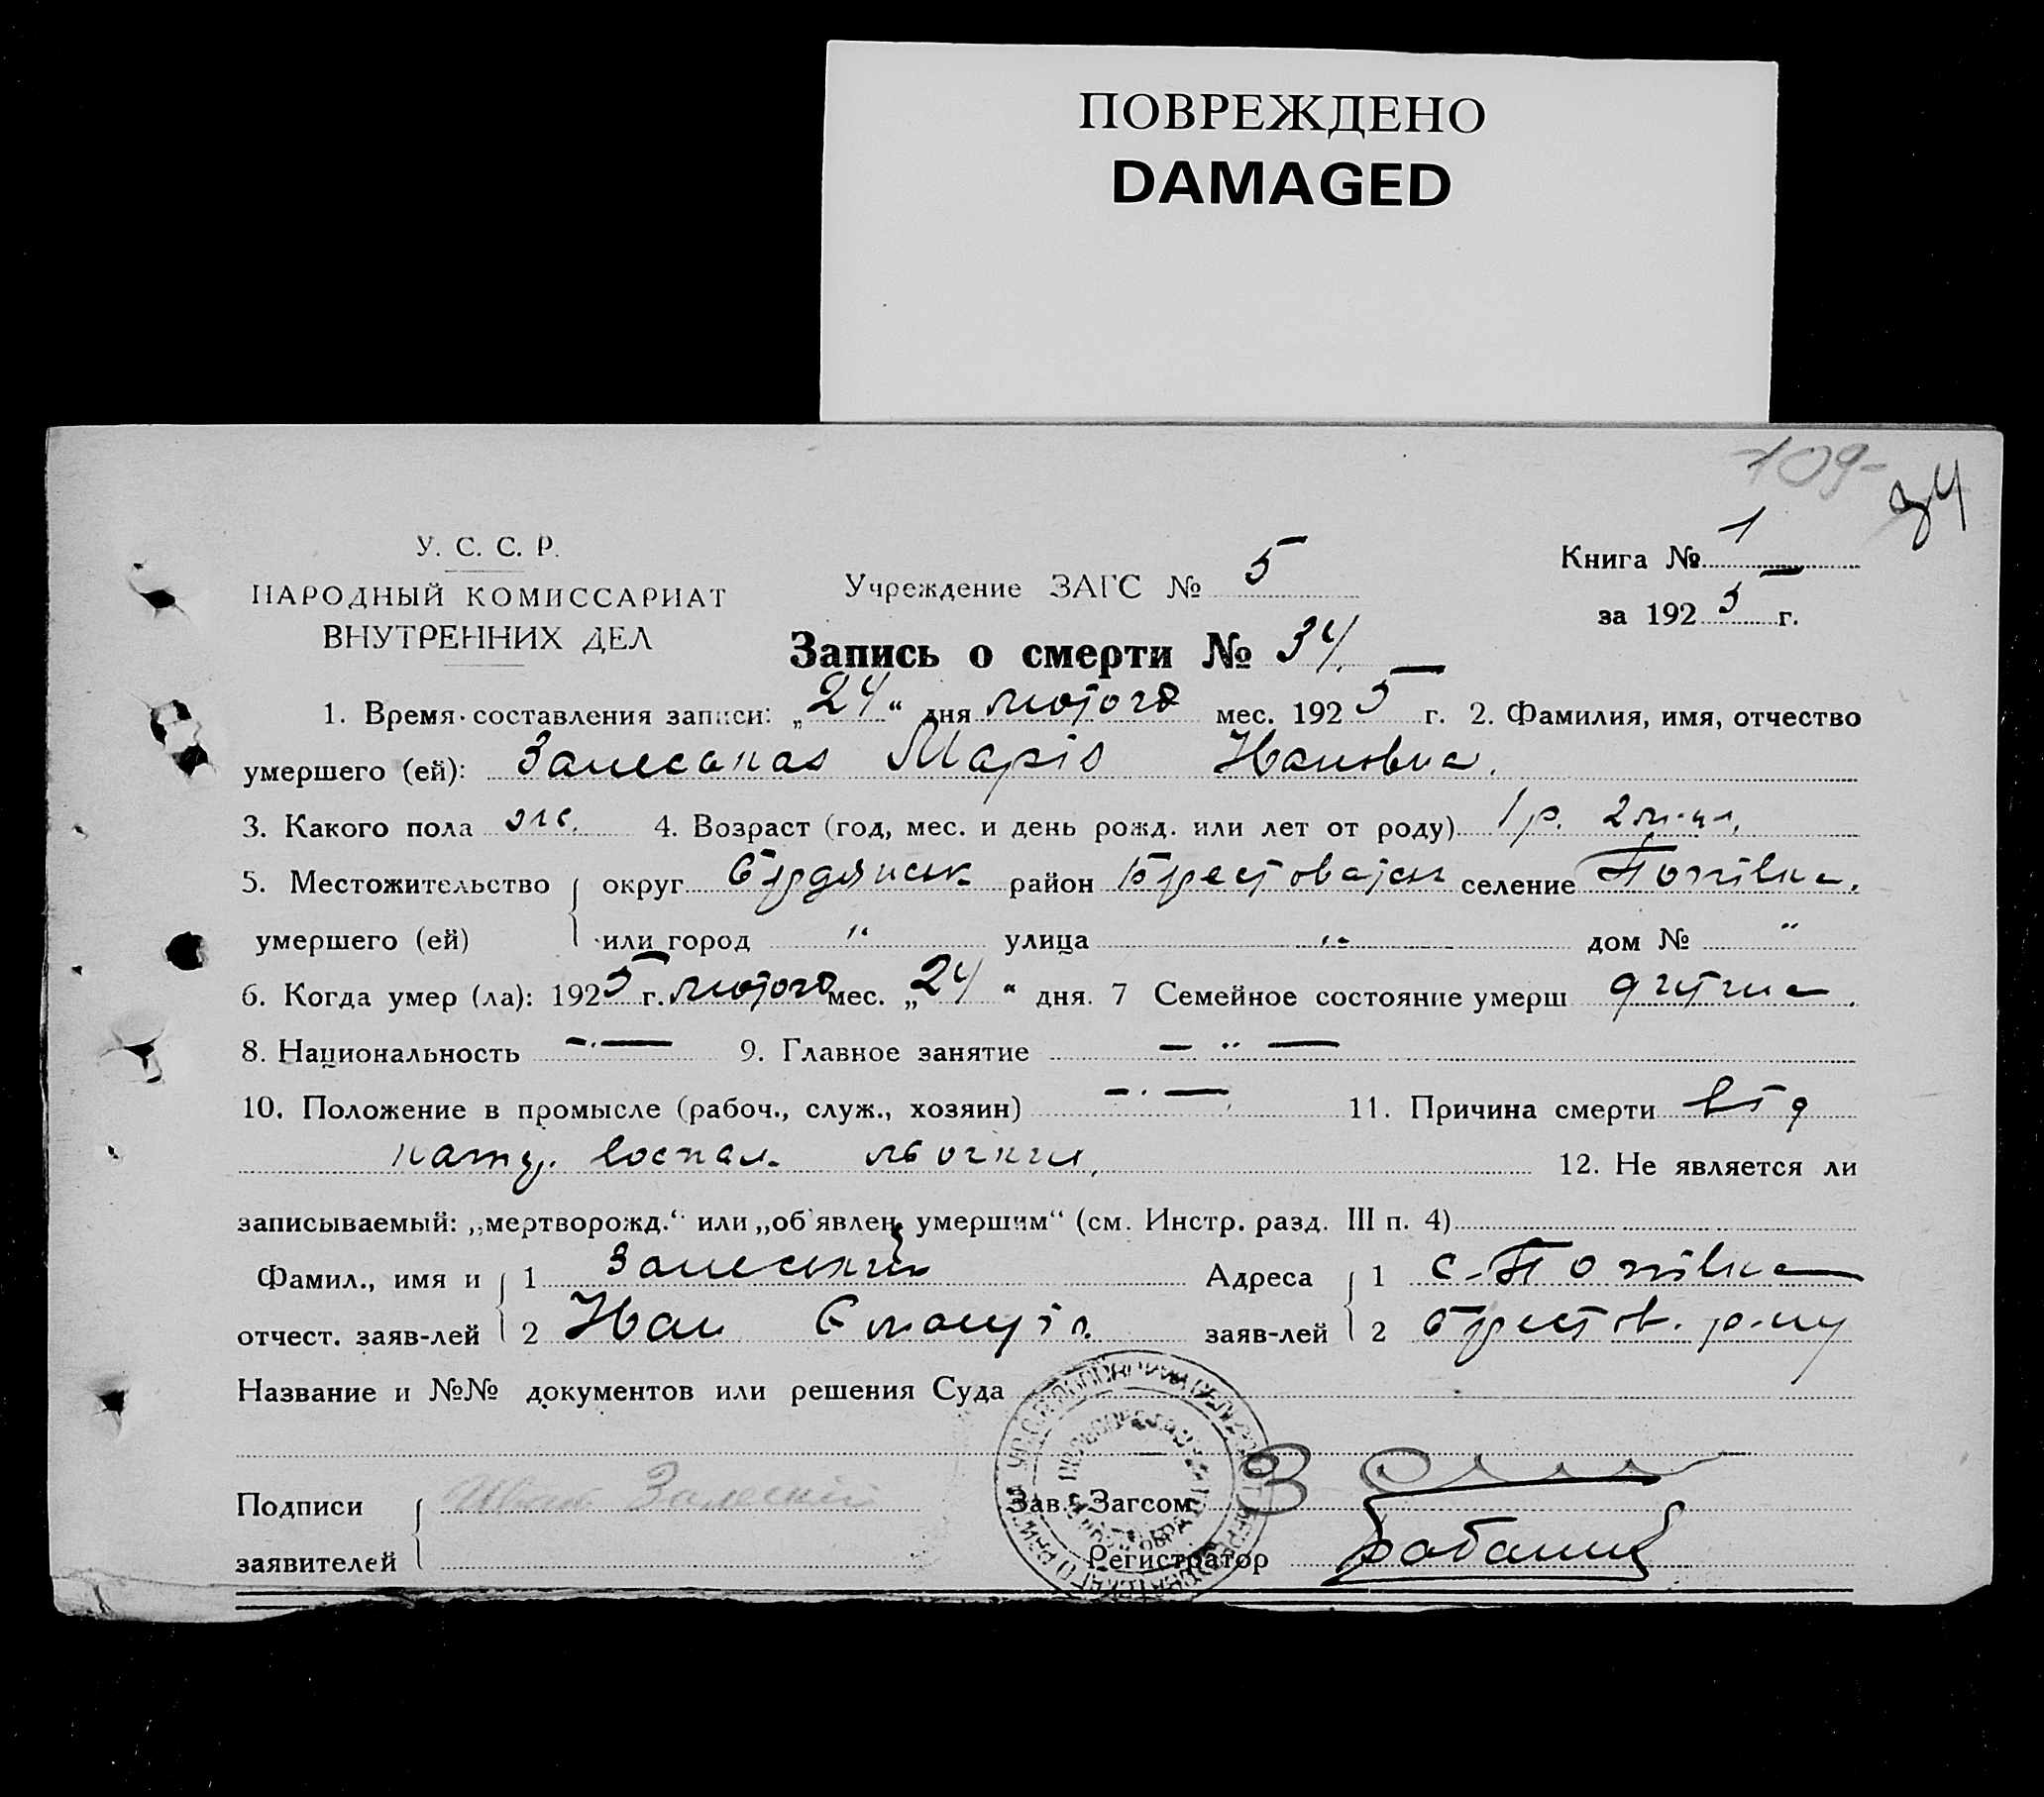 ПОВРЕЖДЕНО
DAMAGED
109-
34
У. С. С. Р.
НАРОДНЫЙ КОМИССАРИАТ
ВНУТРЕННИХ ДЕЛ
Учреждение ЗАГС № 5
Книга № 1
за 1925 г.
Запись о смерти № 34.
1. Время составления записи: „24“ дня лютого мес. 1925 г. 2. Фамилия, имя, отчество
умершего (ей): Марія Ивановна.
3. Какого пола ж. 4. Возраст (год, мес. и день рожд. или лет от роду) 1 р. 2
5. Местожительство округ Бердянськ район селение
умершего (ей) или город " улица " дом № "
6. Когда умер (ла): 1925 г. лютого мес. „24“ дня. 7 Семейное состояние умерш дитина.
8. Национальность — 9. Главное занятие — " —
10. Положение в промысле (рабоч., служ., хозяин) — 11. Причина смерти від
воспал.
12. Не является ли
записываемый: „мертворожд.“ или „об'явлен умершим“ (см. Инстр. разд. III п. 4)
Фамил., имя и 1 Залеский Адреса 1 с.
отчест. заяв-лей 2 Иван заяв-лей 2
Название и №№ документов или решения Суда
Подписи Иван Залеский Зав. Загсом
заявителей Регистратор